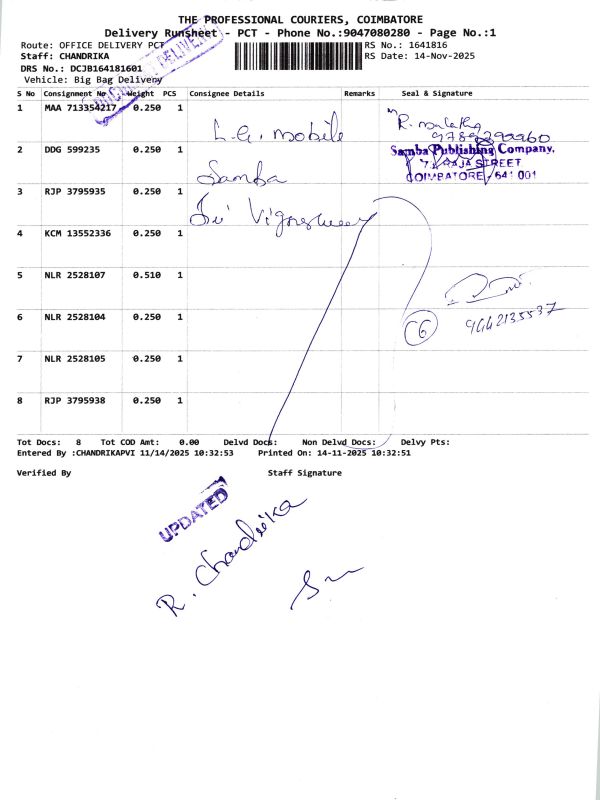 THE PROFESSIONAL COURIERS, COIMBATORE
Delivery Runsheet - PCT - Phone No.:9047080280 - Page No.:1
Route: OFFICE DELIVERY PCT
RS No.: 1641816
Staff: CHANDRIKA
RS Date: 14-Nov-2025
DRS No.: DCJB164181601
Vehicle: Big Bag Delivery
S No Consignment No Weight PCS Consignee Details Remarks Seal & Signature
1 MAA 713354217 0.250 1 L.G. mobile R. malathy
2 DDG 599235 0.250 1 Samba Samba Publishing Company,
7, RAJA STREET
COIMBATORE - 641 001
3 RJP 3795935 0.250 1 Sri
4 KCM 13552336 0.250 1
5 NLR 2528107 0.510 1
6 NLR 2528104 0.250 1 C6 9442135537
7 NLR 2528105 0.250 1
8 RJP 3795938 0.250 1
Tot Docs: 8 Tot COD Amt: 0.00 Delvd Docs: Non Delvd Docs: Delvy Pts:
Entered By :CHANDRIKAPVI 11/14/2025 10:32:53 Printed On: 14-11-2025 10:32:51
Verified By Staff Signature
UPDATED
R. Chandrika